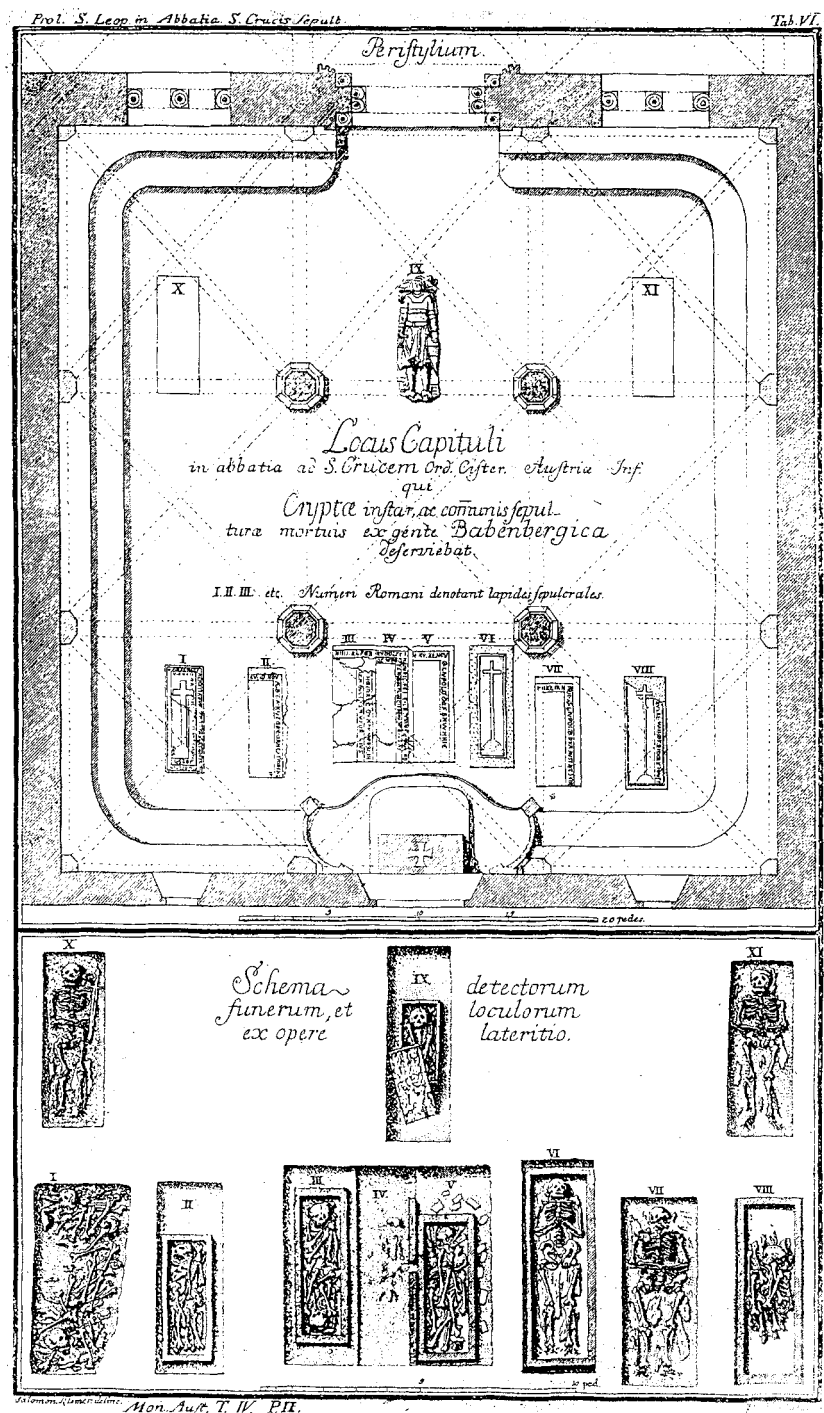 Prol. S. Leop. in Abbatia S. Crucis sepult.
Tab. VI.
Peristylium.
X
IX
XI
Locus Capituli
in abbatia ad S. Crucem Ord. Cister. Austriæ Inf.
qui
Cryptæ instar, ac com̄unis sepul-
turæ mortuis ex gente Babenbergica
deserviebat.
I. II. III. etc. Numeri Romani denotant lapides sepulcrales.
I
II
III
IV
V
VI
VII
VIII
5
10
15
20 pedes.
X
Schema
funerum, et
ex opere
IX
detectorum
loculorum
lateritio.
XI
I
II
III
IV.
V
VI
VII
VIII
5
10 ped.
Salomon Kleiner deline.
Mon. Aust. T. IV. P. II.